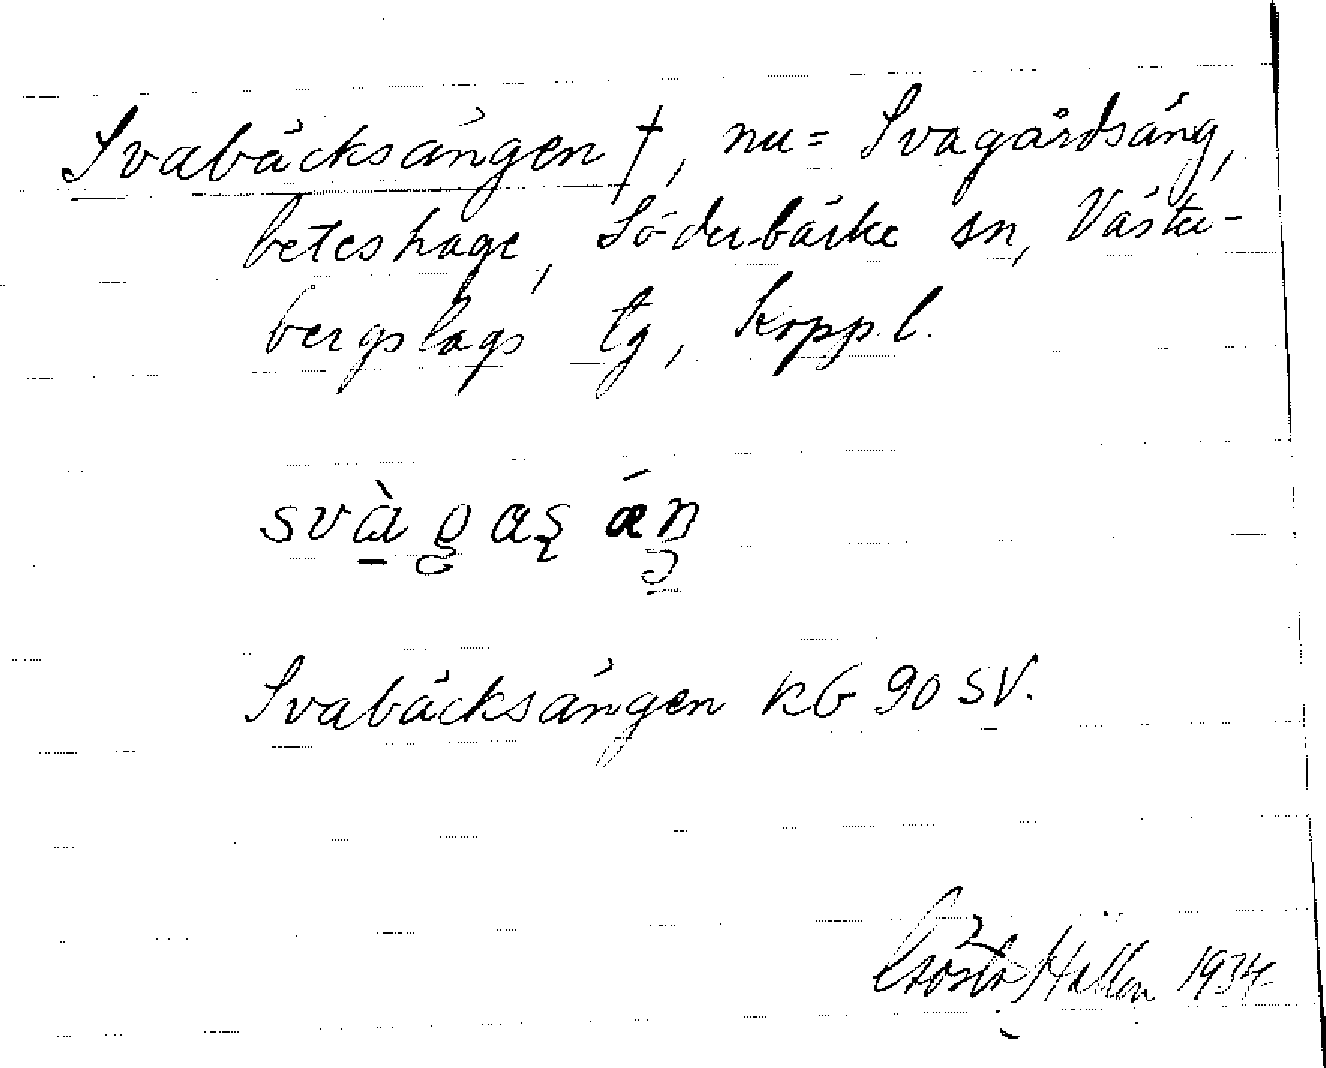 Svabäcksängen †, nu = Svagårdsäng,
beteshage, Söderbärke sn, Väster-
bergslags tg, Kopp.l.
svàgas áŋ
Svabäcksängen KG 90 SV.
Gösta Hållén 1934